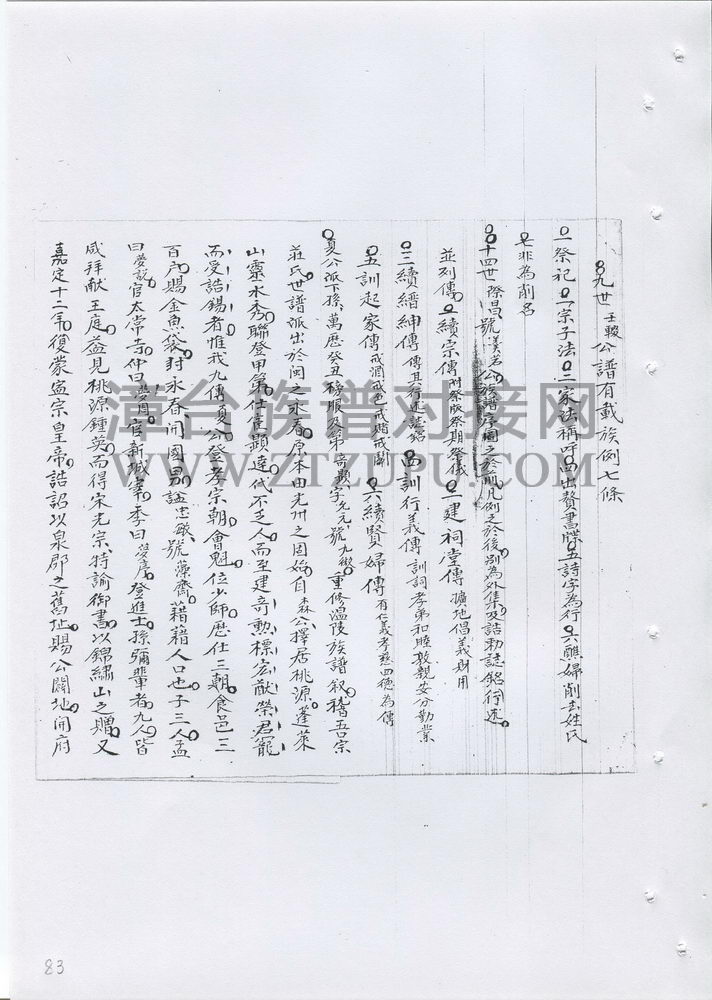 九世 壬駿公譜有載族例七條
一祭祀 二宗子法 三家法稱呼 四出贅書牒 五詩字為行 六醮婦削去姓氏
七非為削名
十四世際昌號羙若公族譜序圖之於前凡例之於後別為外集及誥勅誌銘行述
並列傳 一續宗傳 附祭服祭期祭儀 二建祠堂傳 擴地倡義財用
三續縉紳傳 傳其行述誌銘 四訓行義傳 訓詞孝弟和睦敦親安分勤業
五訓起家傳 戒酒戒色戒賭戒鬪 六續賢婦傳 有仁義孝慈四德為傳
夏公派下孫萬歷癸丑榜眼及第 奇顯字允元號九緻 重修溫陵族譜敘稽吾宗
莊氏世譜派出於閩之永春原本由光州之固始自森公擇居桃源蓬萊
山靈水秀聯登甲第仕宦顯達代不乏人而至建奇勳標宏猷榮君寵
而受誥錫者惟我九傳夏公登孝宗朝會魁位少師歷仕三朝食邑三
百戶賜金魚袋封永春開國男謚忠敏號藻齋籍籍人口也子三人孟
曰夢說官太常寺仲曰夢周官新城宰季曰夢彥登進士孫彌輩者九人皆
咸拜献王庭益見桃源鍾英而得宋光宗特諭御書以錦繡山之贈又
嘉定十二年復蒙寧宗皇帝誥詔以泉郡之舊址賜公闢地開府
漳台族谱对接网
WWW.ZTZUPU.COM
83